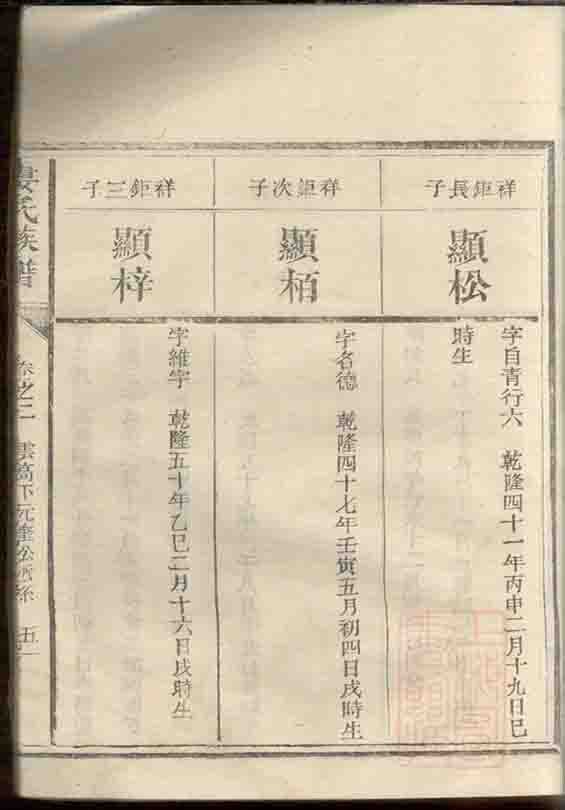 祥鉅長子
顯松
字自青行六 乾隆四十一年丙申二月十九日巳
時生
祥鉅次子
顯栢
字名德 乾隆四十七年壬寅五月初四日戌時生
祥鉅三子
顯梓
字維字 乾隆五十年乙巳二月十六日戌時生
婁氏族譜
卷之二 雲高下元奎公所系 五